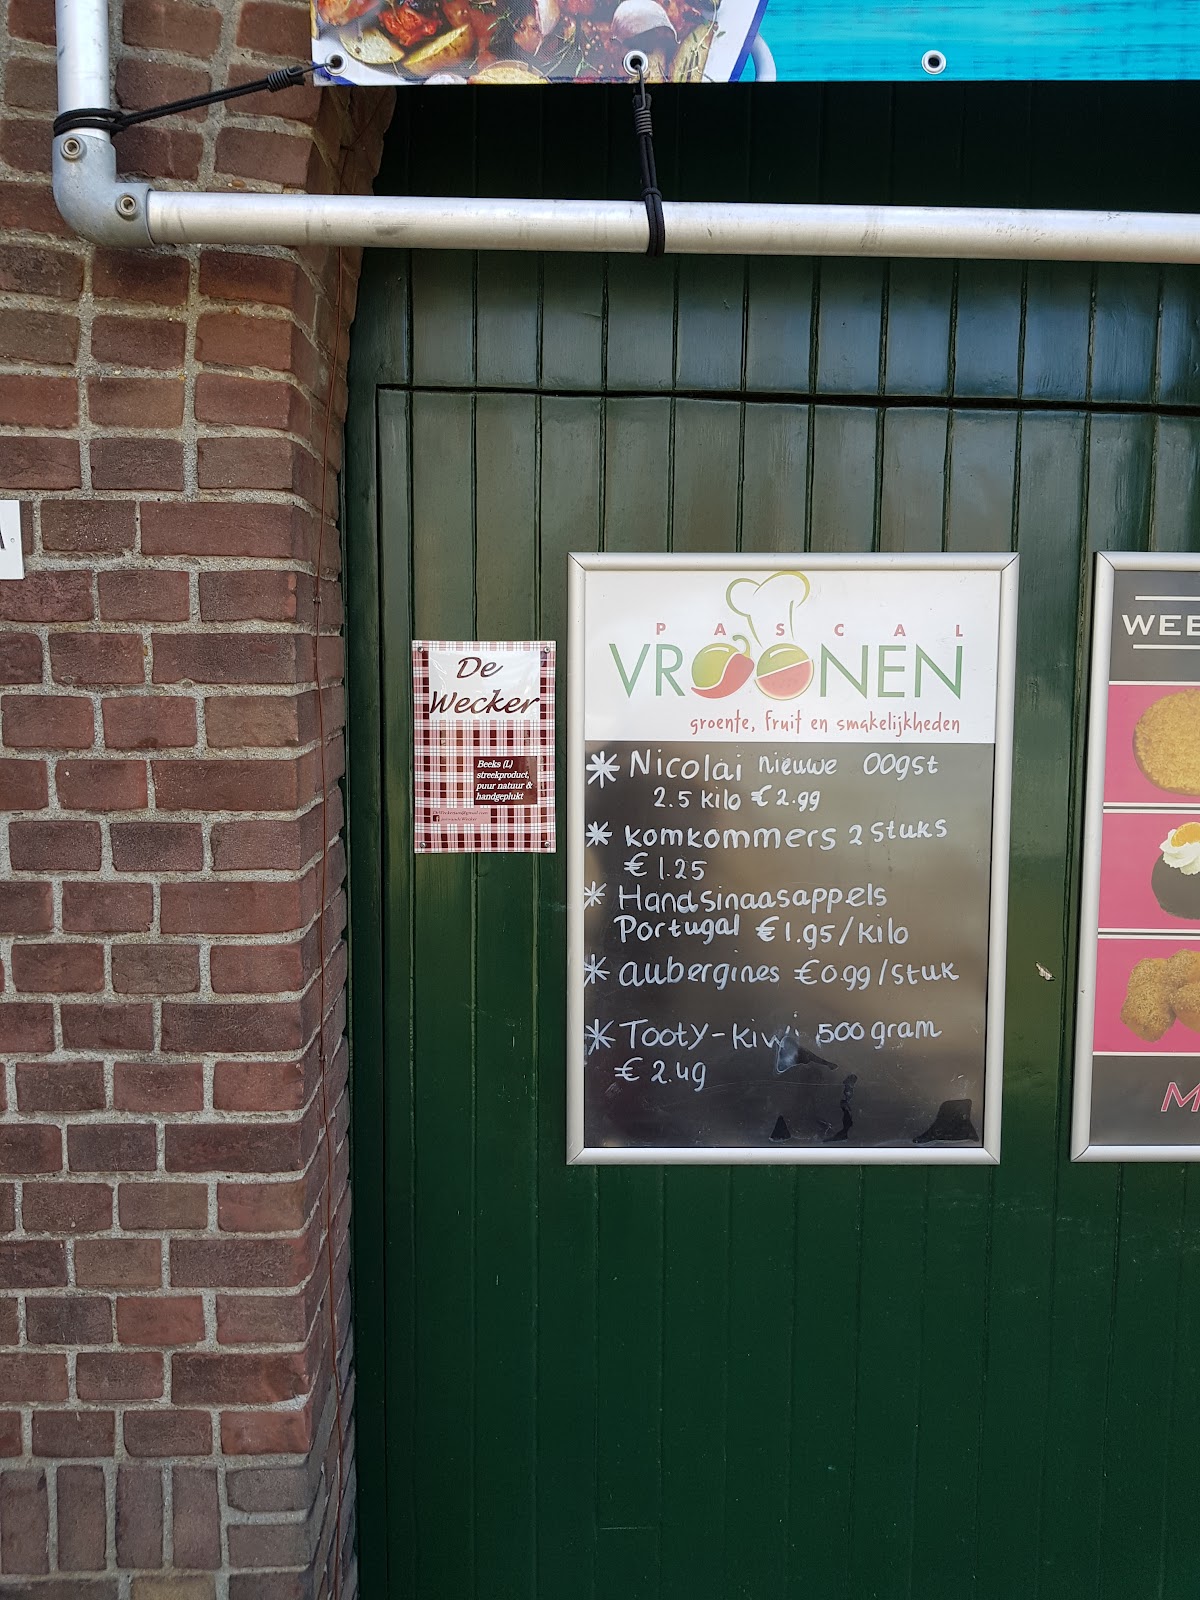 De
Wecker
Beeks (L)
streekproduct,
puur natuur &
handgeplukt
PASCAL
VROONEN
groente, fruit en smakelijkheden
* Nicolai nieuwe oogst
2.5 kilo € 2.99
* komkommers 2 stuks
€ 1.25
* Handsinaasappels
Portugal € 1.95/kilo
* aubergines €0.99/stuk
* Tooty-kiwi 500 gram
€ 2.49
WEE
M